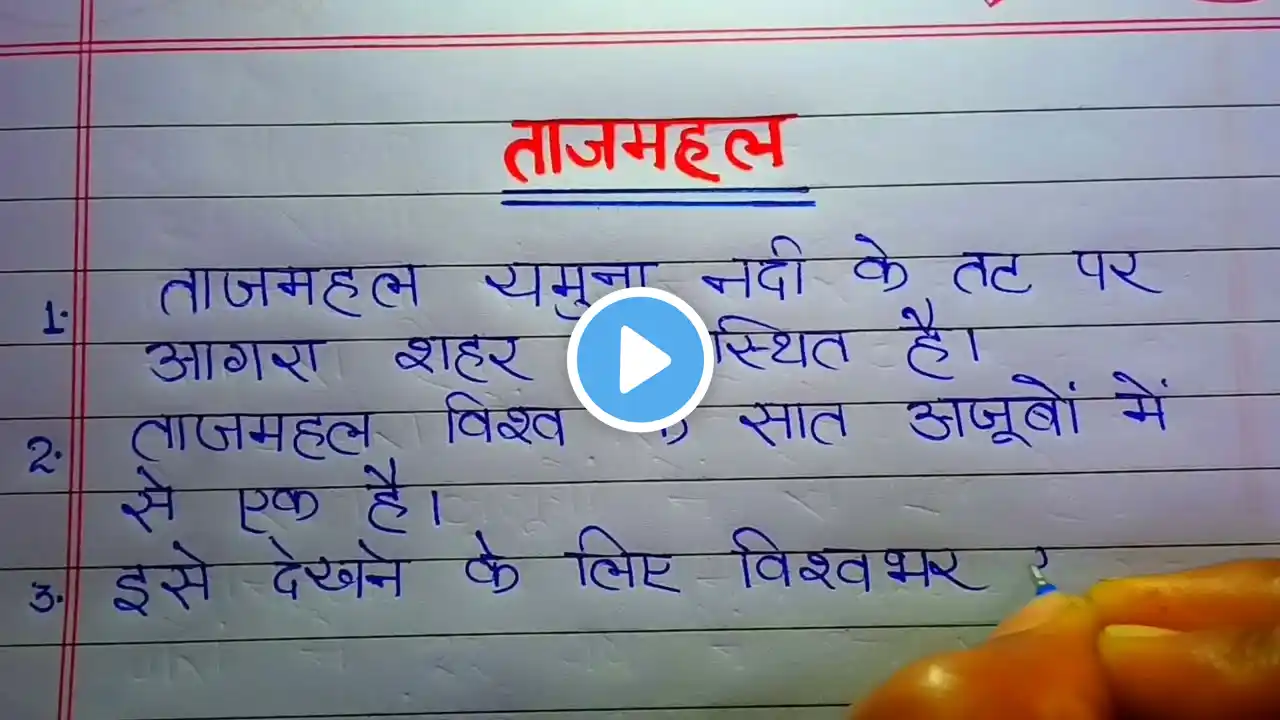 ताजमहल
1. ताजमहल यमुना नदी के तट पर
आगरा शहर स्थित है।
2. ताजमहल विश्व सात अजूबों में
से एक है।
3. इसे देखने के लिए विश्वभर